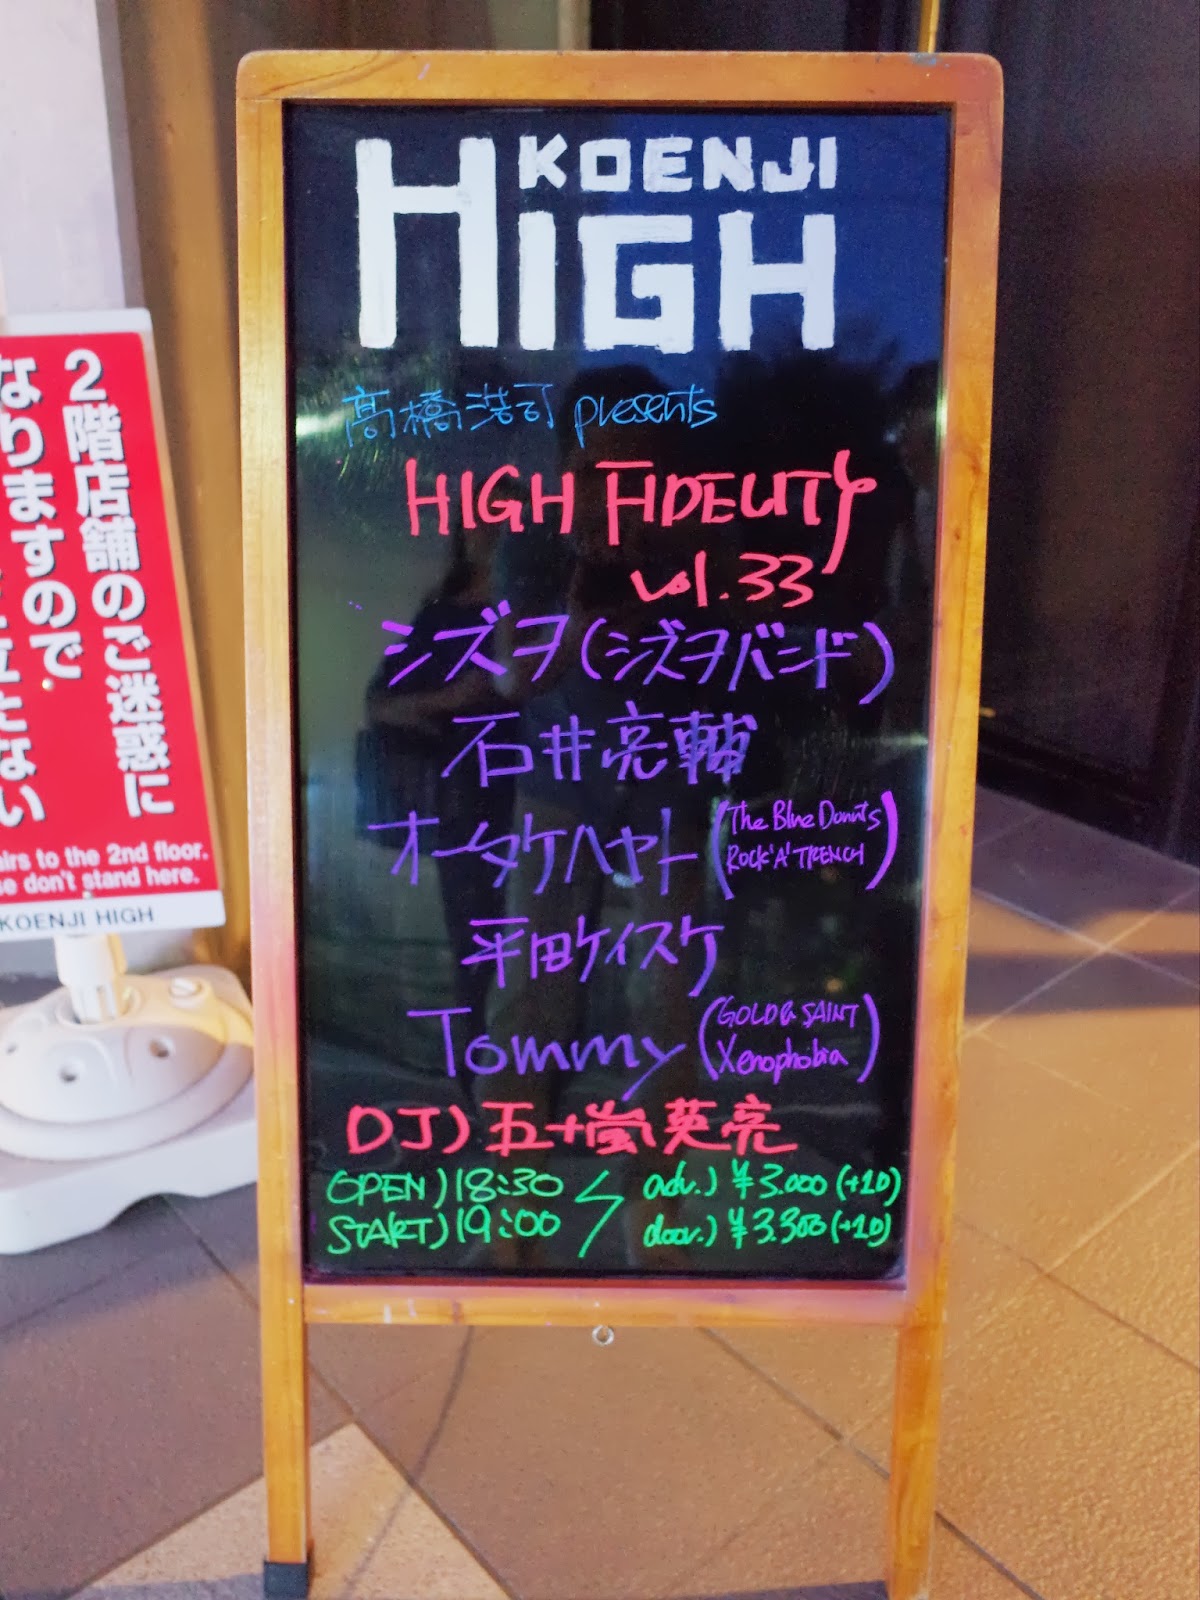 KOENJI
HIGH
高橋浩司 presents
HIGH FIDELITY
vol.33
シズヲ(シズヲバンド)
石井亮輔
オータケハヤト(The Blue Donuts
ROCK'A'TRENCH)
平田ケイスケ
Tommy(GOLD & SAINT
Xenophobia)
DJ)五十嵐英亮
OPEN)18:30 / adv.)¥3.000(+1D)
START)19:00 door.)¥3.300(+1D)
2階店舗のご迷惑に
なりますので
立たない
to the 2nd floor.
don't stand here.
KOENJI HIGH